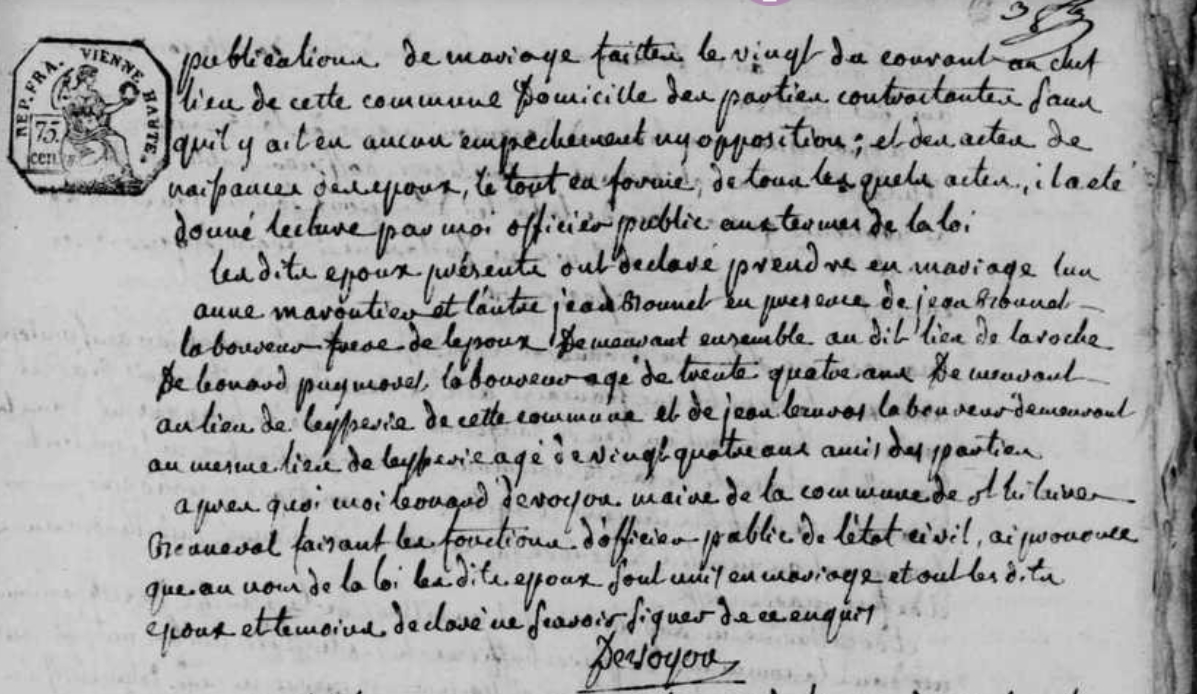 REP. FRA. VIENNE HAUTE.
75. cen.
publications de mariage faittes le vingt du courant au chef
lieu de cette commune Domicille des parties contractantes sans
quil y ait eu aucun empechement ny opposition; et des actes de
naissances des epoux, le tout en forme, de tous les quels actes, il a eté
donné lecture par moi officier public aux termes de la loi
les dits epoux présents ont declaré prendre en mariage lun
anne maroutier et l'autre jean en presence de jean
laboureur frere de lepoux Demeurant ensemble au dit lieu de laroche
De leonard puymorel laboureur agé de trente quatre ans Demeurant
au lieu de leysserie de cette commune et de jean laboureur demeurant
au mesme lieu de leysserie agé de vingt quatre ans amis des parties
apres quoi moi leonard devoyon maire de la commune de st hilaire
Bonneval faisant les fonctions d'officier public de l'état civil, ai prononcé
que au nom de la loi les dits epoux sont unis en mariage et ont les dits
epoux et temoins declaré ne scavoir signer de ce enquis
Devoyon